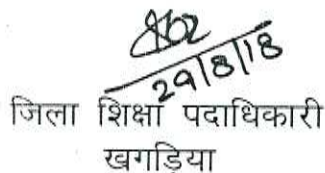 29/8/18
जिला शिक्षा पदाधिकारी
खगड़िया